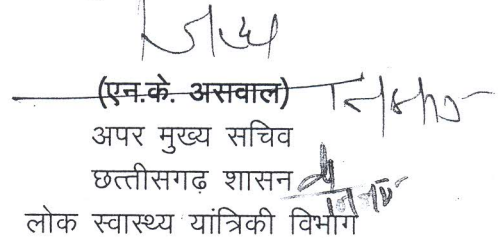 (एन.के. असवाल)
अपर मुख्य सचिव
छत्तीसगढ़ शासन
लोक स्वास्थ्य यांत्रिकी विभाग